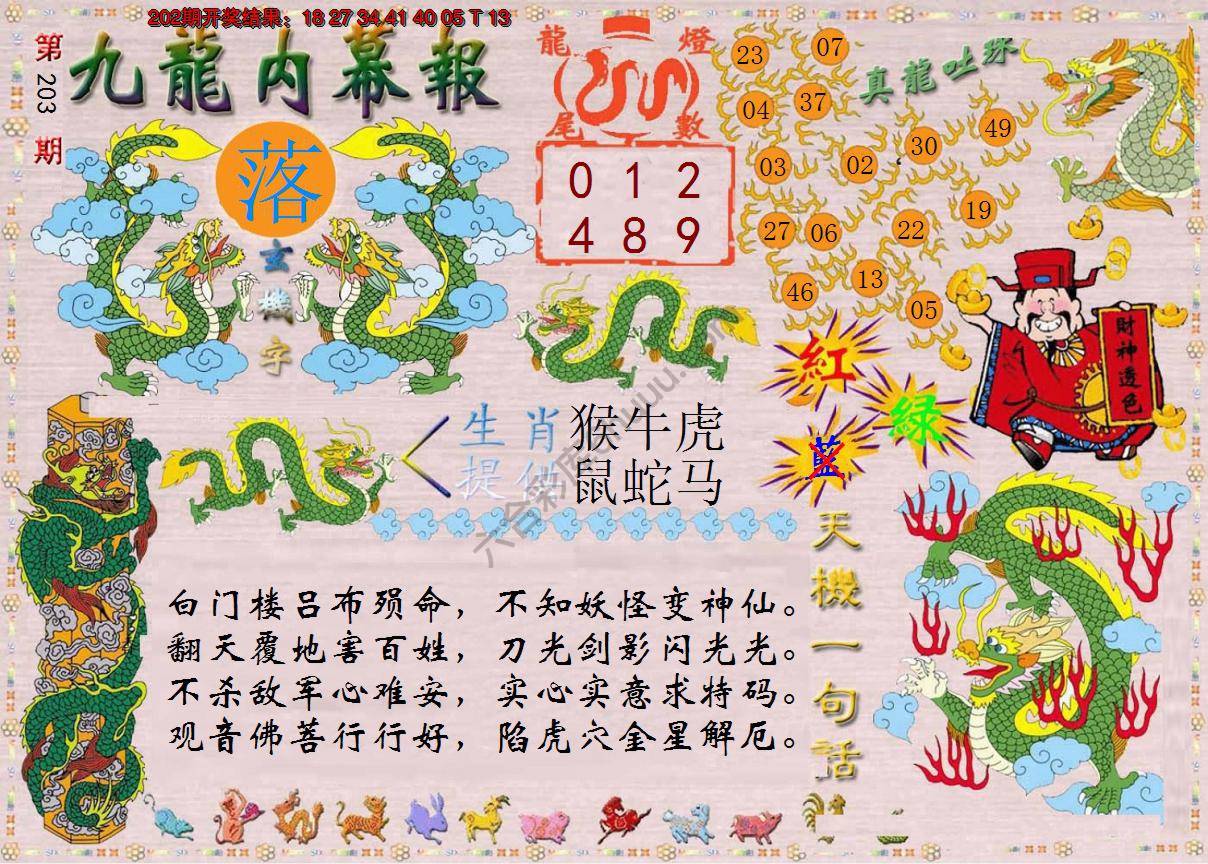 202期开奖结果：18 27 34 41 40 05 T 13
第203期
九龍内幕報
落
玄機字
龍燈
尾數
0 1 2
4 8 9
真龍吐珠
23 07
04 37
03 02 30 49
27 06 22 19
46 13 05
紅
綠
藍
財神透色
生肖提供
猴牛虎
鼠蛇马
天機一句話
白门楼吕布殒命，不知妖怪变神仙。
翻天覆地害百姓，刀光剑影闪光光。
不杀敌军心难安，实心实意求特码。
观音佛菩行行好，陷虎穴金星解厄。